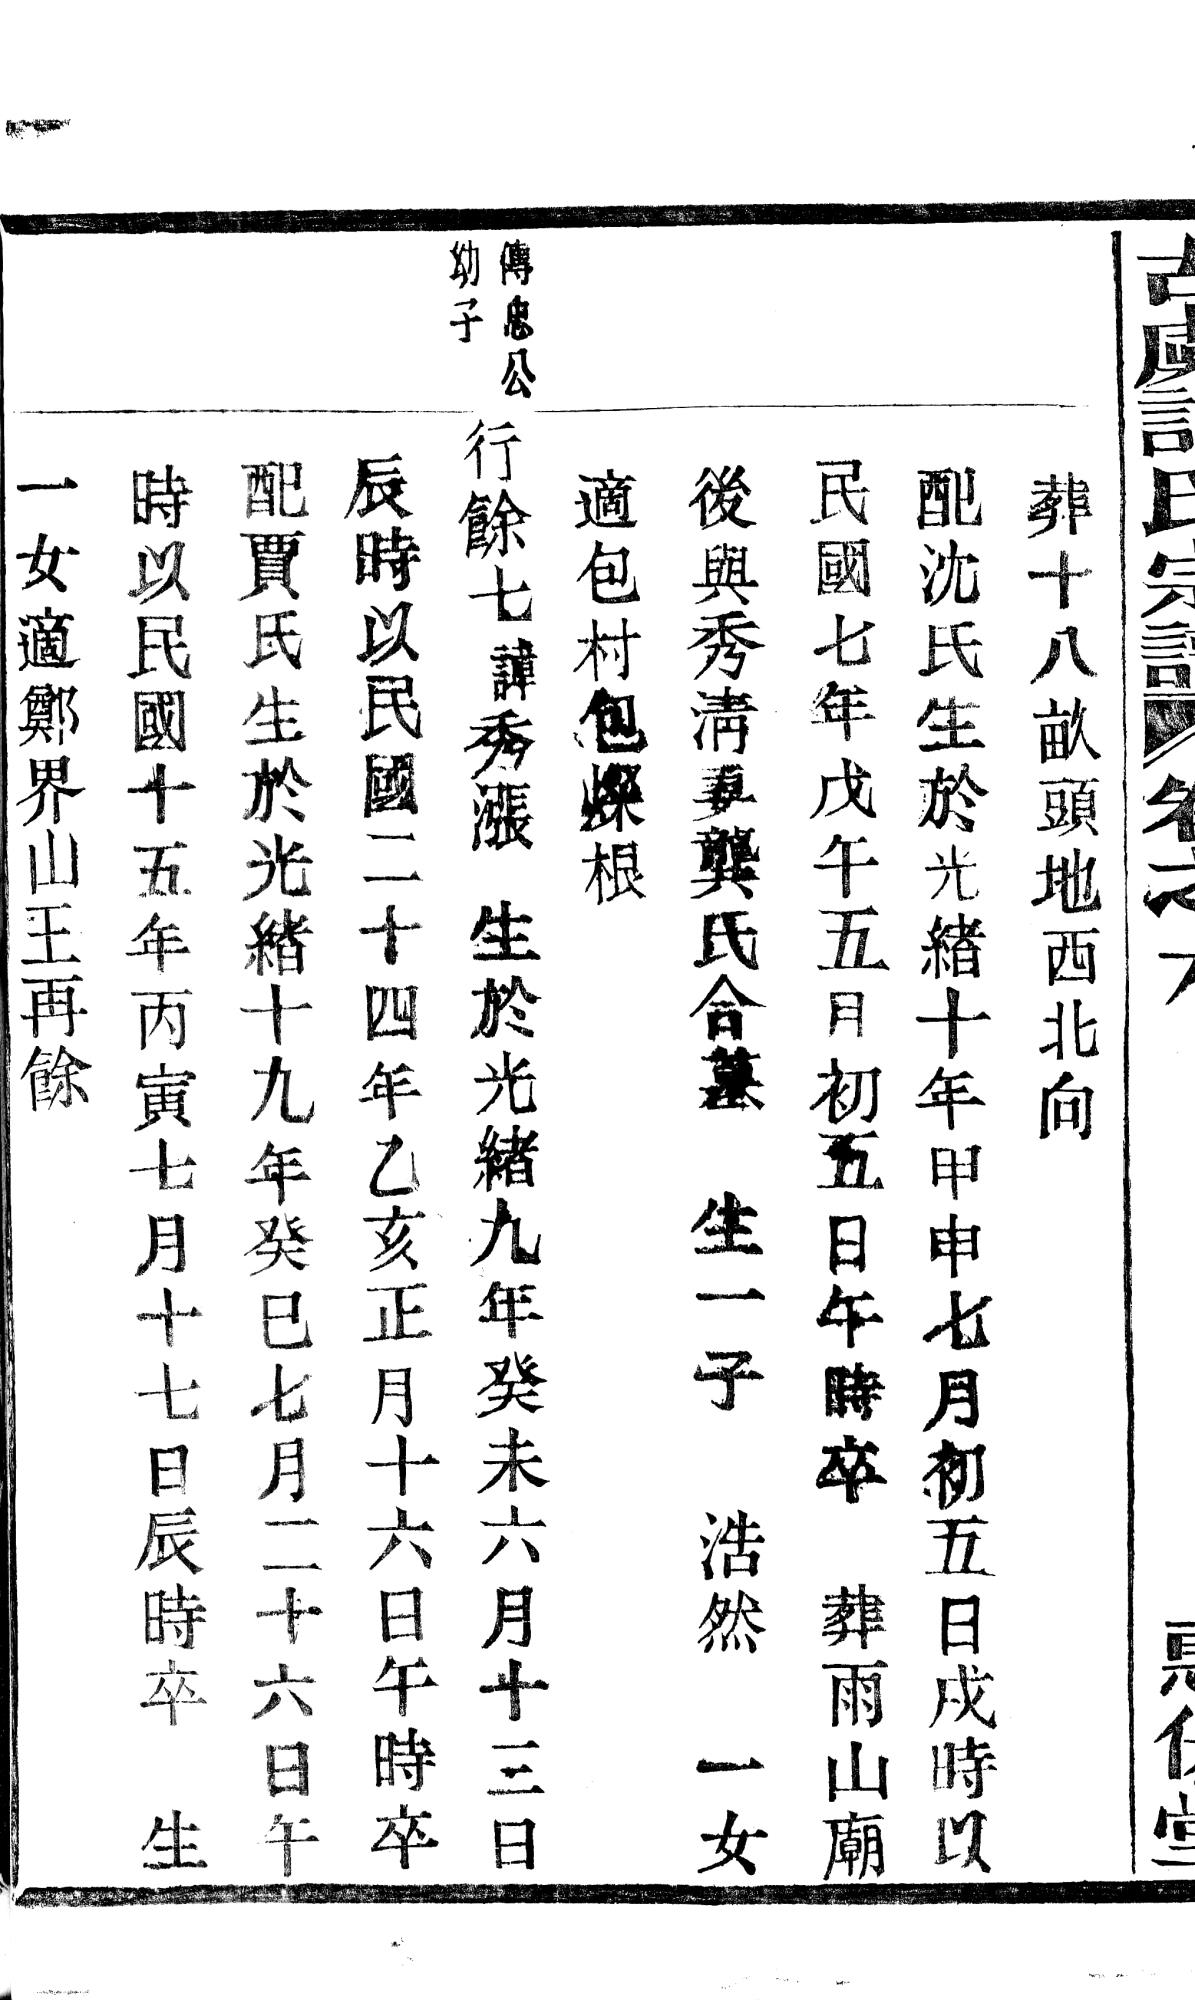 古虞許氏宗譜 卷之六
葬十八畝頭地西北向
配沈氏生於光緒十年甲申七月初五日戌時以
民國七年戊午五月初五日午時卒 葬雨山廟
後與秀清妻龔氏合墓 生一子 浩然 一女
適包村包燦根
傳忠公
幼子
行餘七諱秀漲 生於光緒九年癸未六月十三日
辰時以民國二十四年乙亥正月十六日午時卒
配賈氏生於光緒十九年癸巳七月二十六日午
時以民國十五年丙寅七月十七日辰時卒 生
一女適鄭界山王再餘